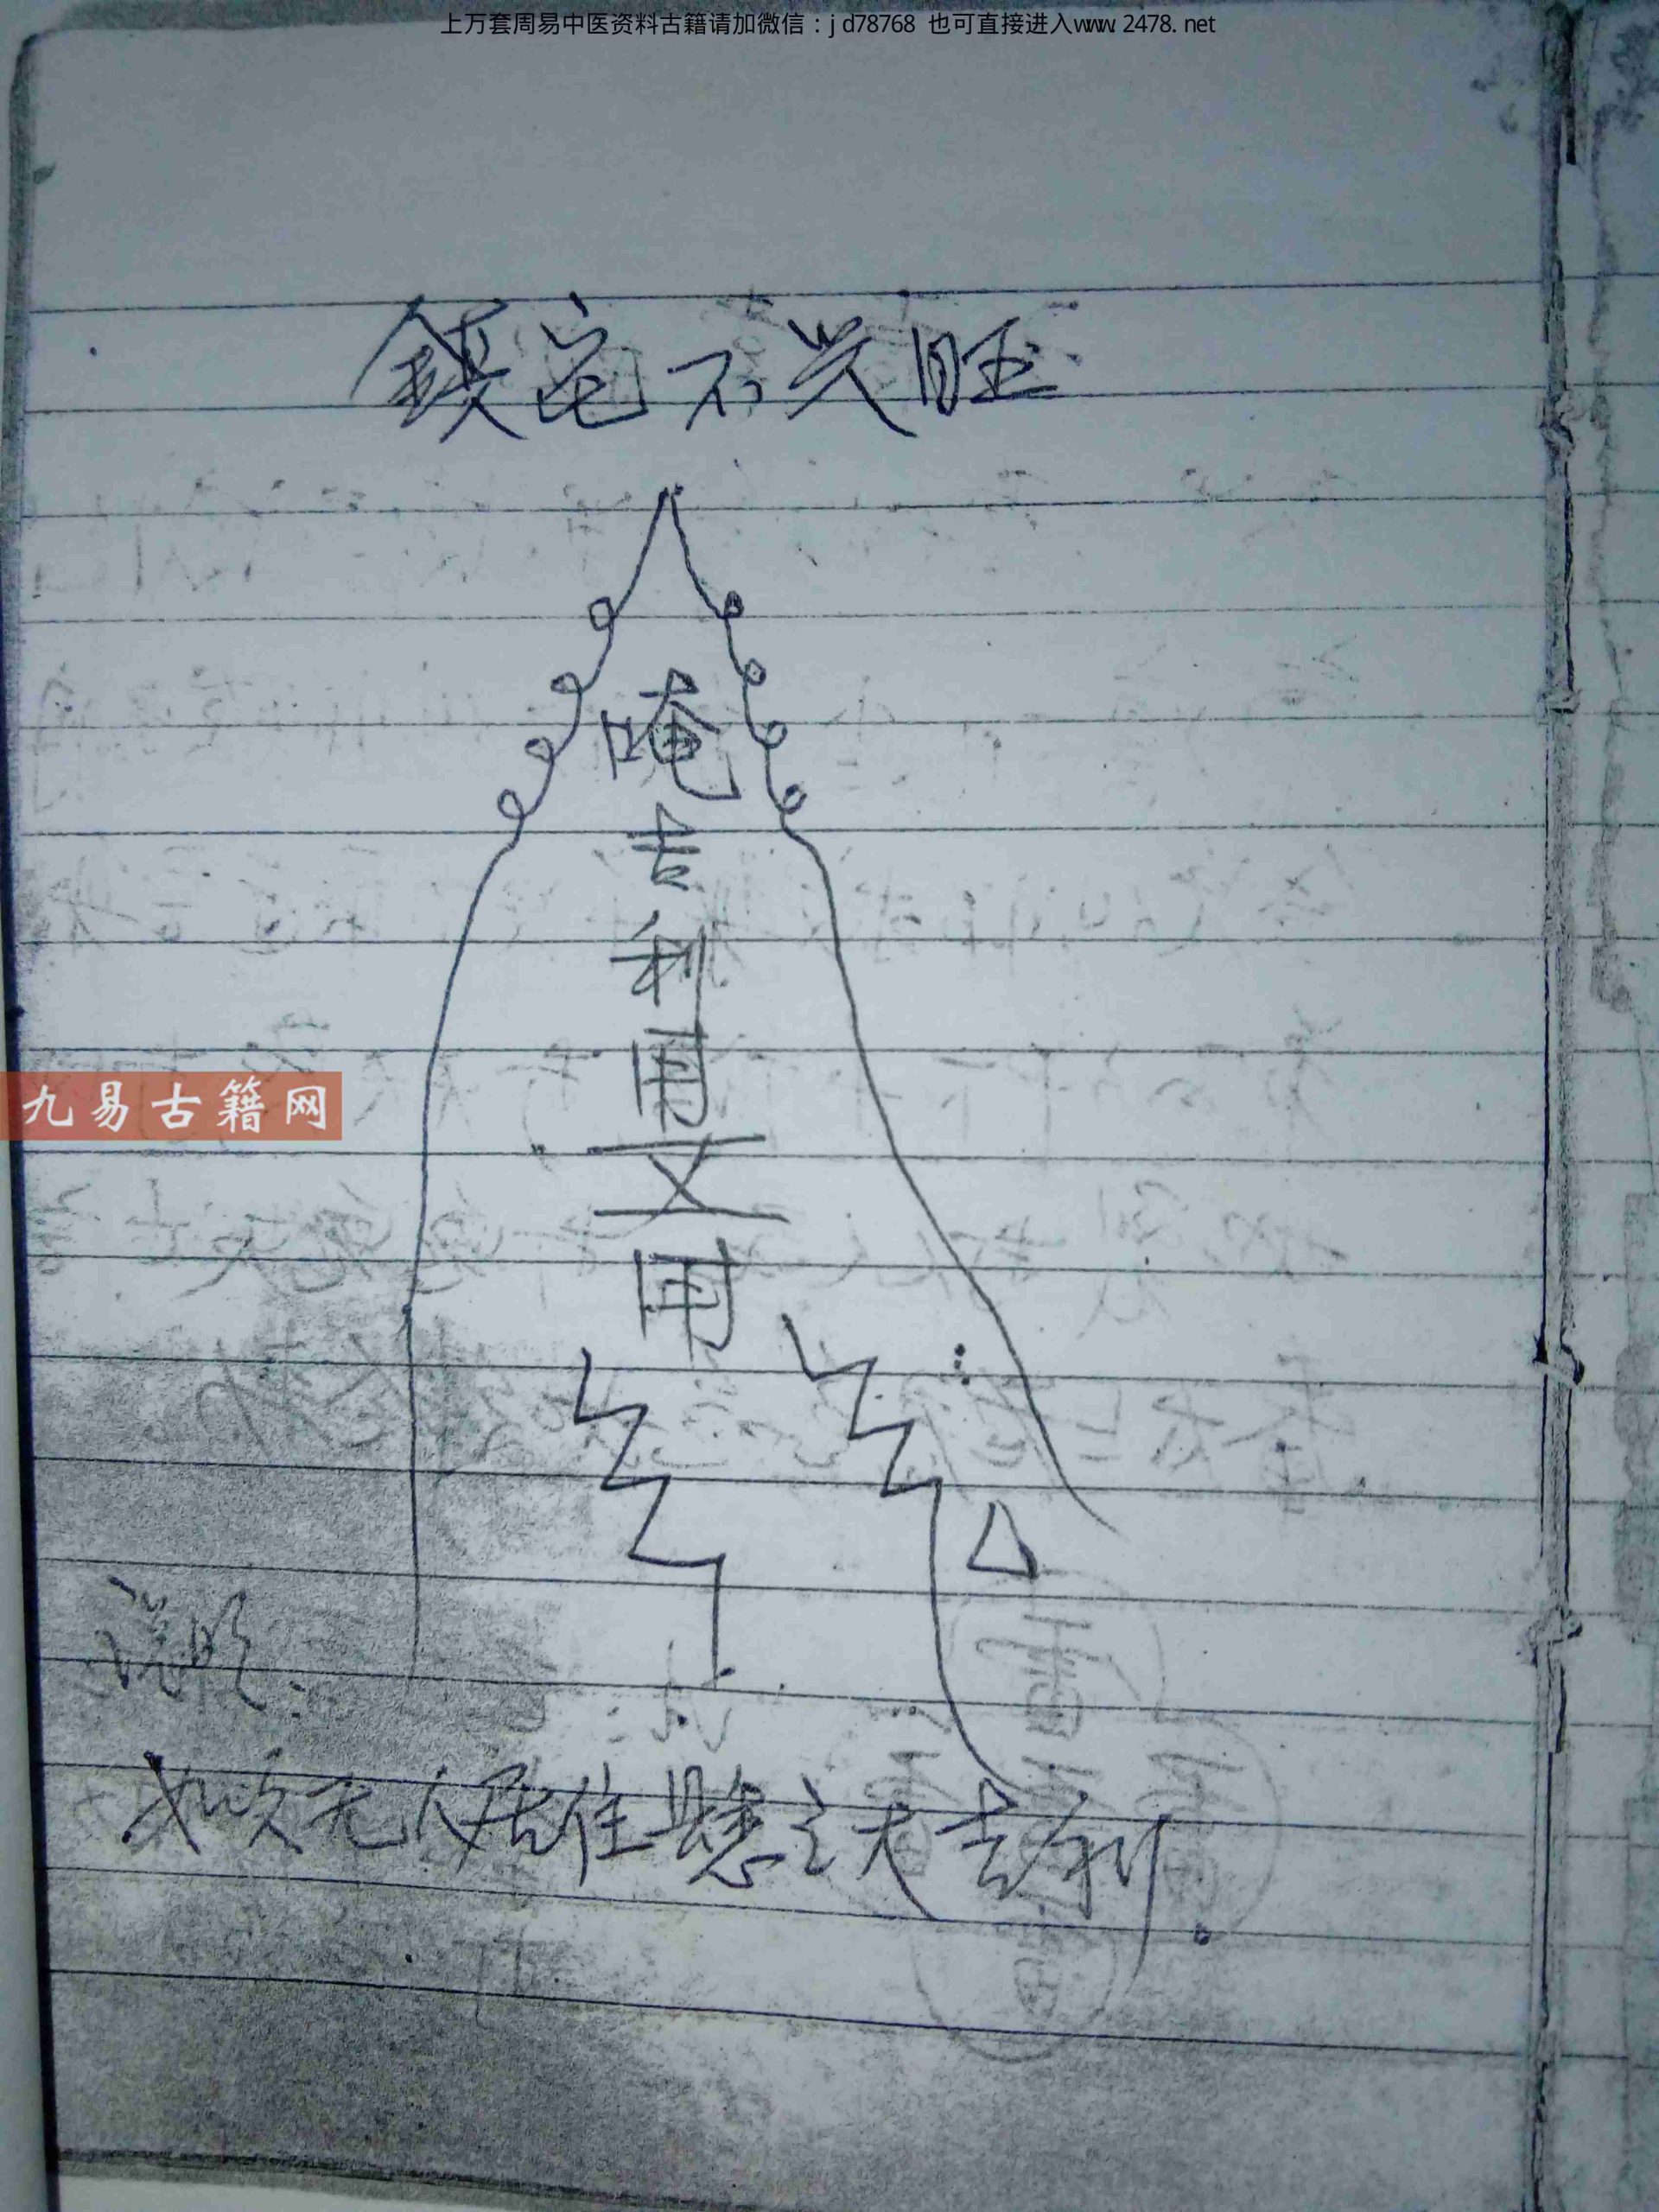 上万套周易中医资料古籍请加微信：jd78768 也可直接进入www.2478.net
鎮宅不兴旺
唵
吉
利
用
用
九易古籍网
说明：
如 无人居住悬之大吉利.